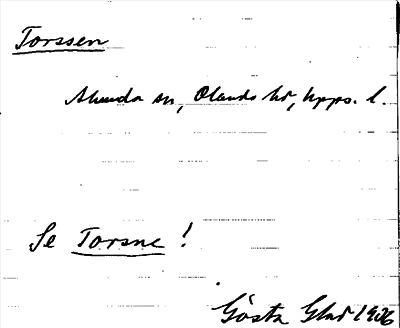 Torssen
Alunda sn, Olands hd, Upps. l.
Se Torsne !
Gösta Glad 1906